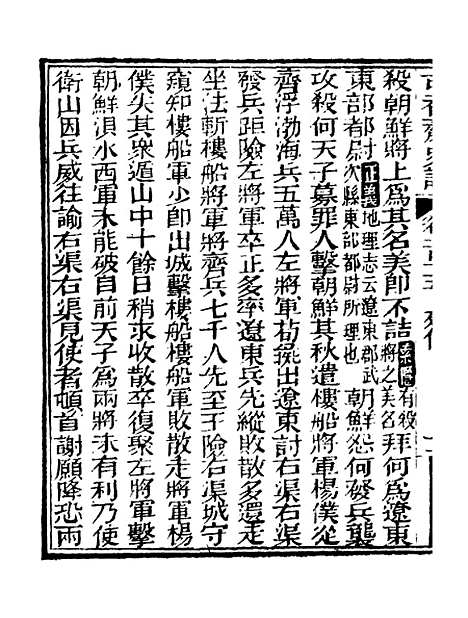 殺朝鮮將上爲其名美即不詰索隱有殺將之美名拜何爲遼東
東部都尉正義地理志云遼東郡武次縣東部都尉所理也朝鮮怨何發兵襲
攻殺何天子募罪人擊朝鮮其秋遣樓船將軍楊僕從
齊浮渤海兵五萬人左將軍荀彘出遼東討右渠右渠
發兵距險左將軍卒正多率遼東兵先縱敗散多還走
坐法斬樓船將軍將齊兵七千人先至王險右渠城守
窺知樓船軍少即出城擊樓船樓船軍敗散走將軍楊
僕失其衆遁山中十餘日稍求收散卒復聚左將軍擊
朝鮮浿水西軍未能破自前天子爲兩將未有利乃使
衛山因兵威往諭右渠右渠見使者頓首謝願降恐兩